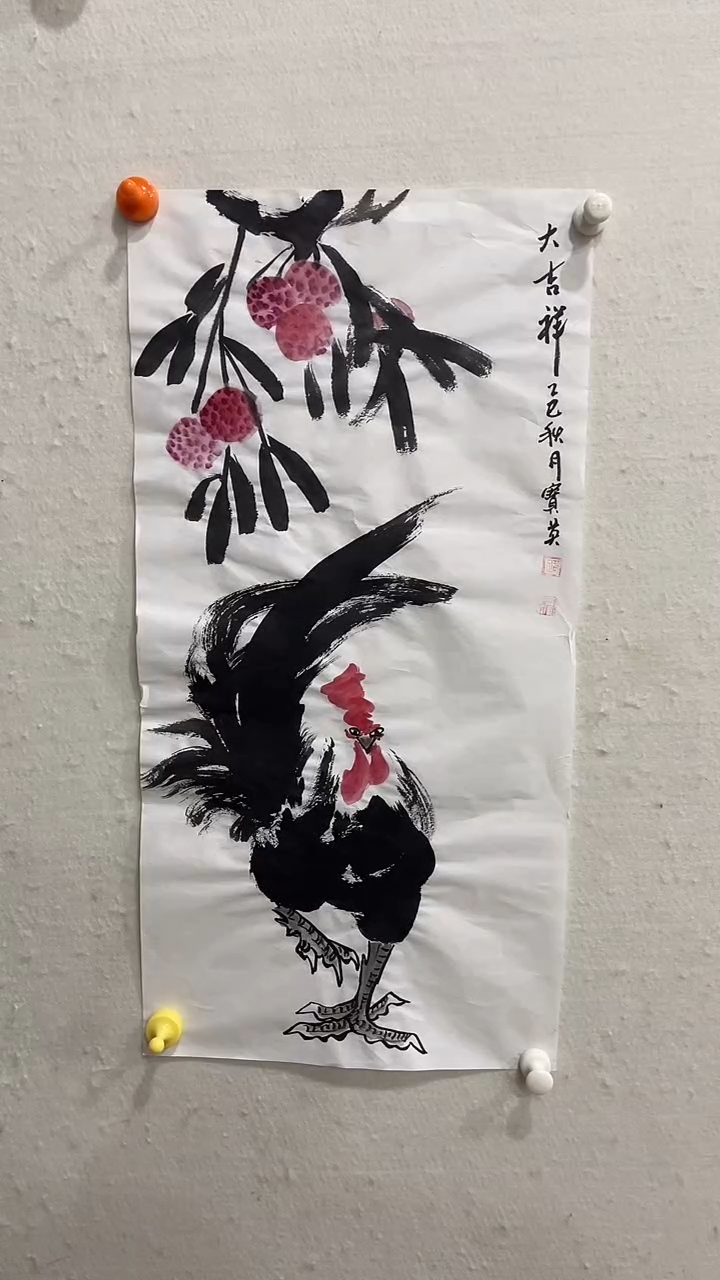 大吉祥乙巳秋月寶英